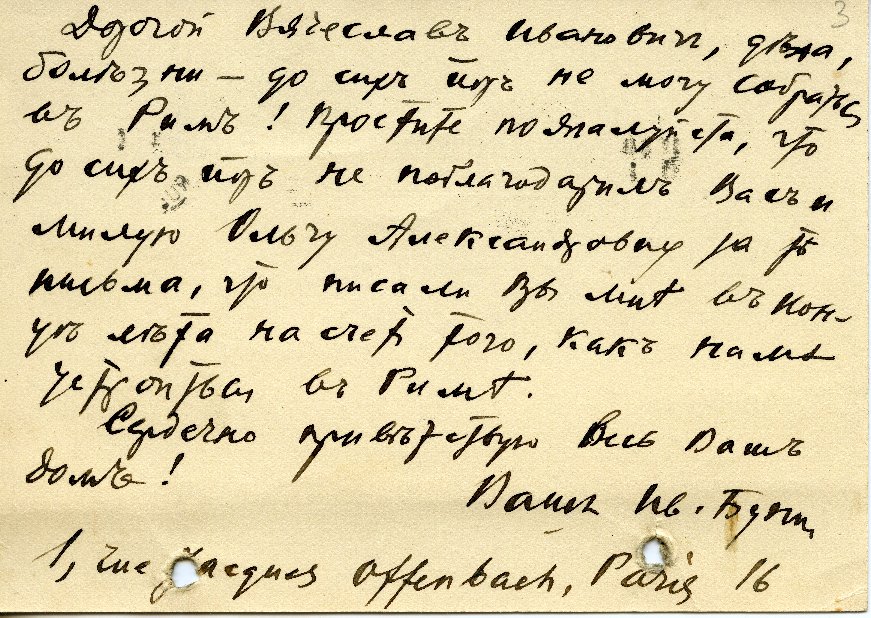 3
Дорогой Вячеславъ Ивановичъ, дѣла,
болѣзни — до сихъ поръ не могу собраться
въ Римъ! Простите пожалуйста, что
до сихъ поръ не поблагодарилъ Васъ и
милую Ольгу Александровну за тѣ
письма, что писали Вы мнѣ въ кон-
цѣ лѣта насчетъ того, какъ намъ
устроиться въ Римѣ.
Сердечно привѣтствую Весь Вашъ
домъ!
Вашъ Ив. Бунин
1, rue Jacques Offenbach, Paris 16